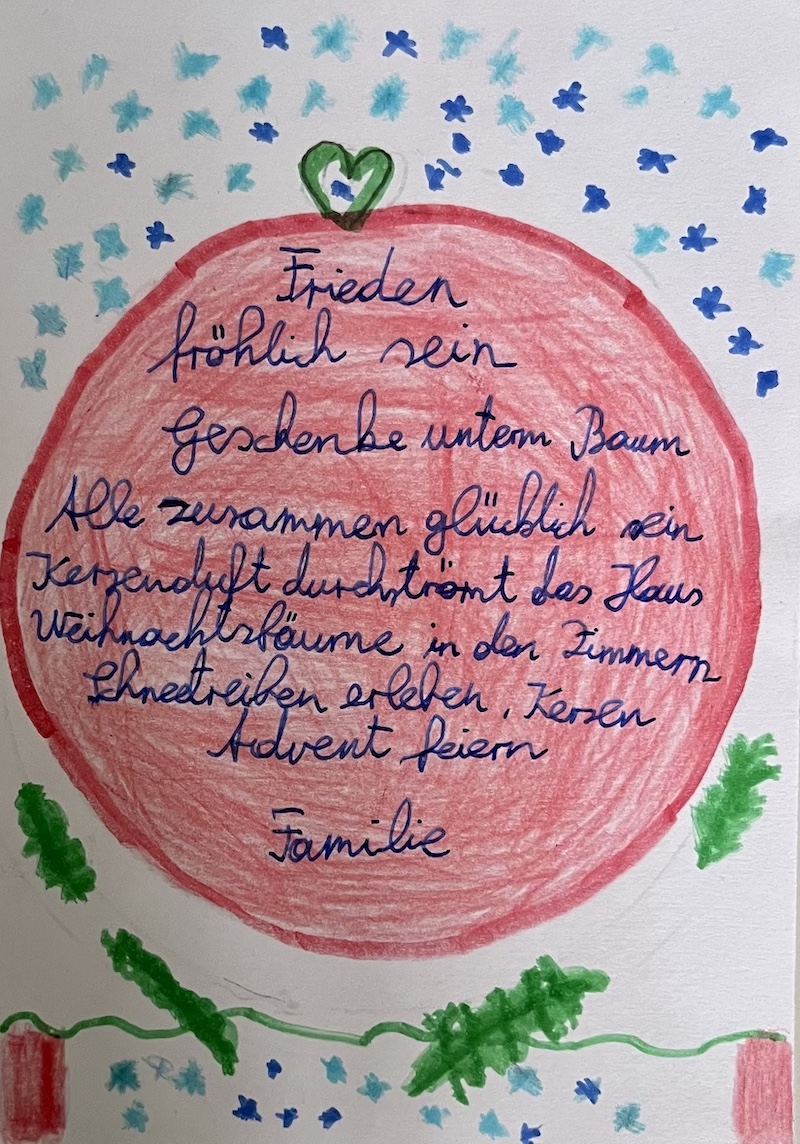 Frieden
fröhlich sein
Geschenke unterm Baum
Alle zusammen glücklich sein
Kerzenduft durchströmt das Haus
Weihnachtsbäume in den Zimmern
Schneetreiben erleben, Kerzen
Advent feiern
Familie